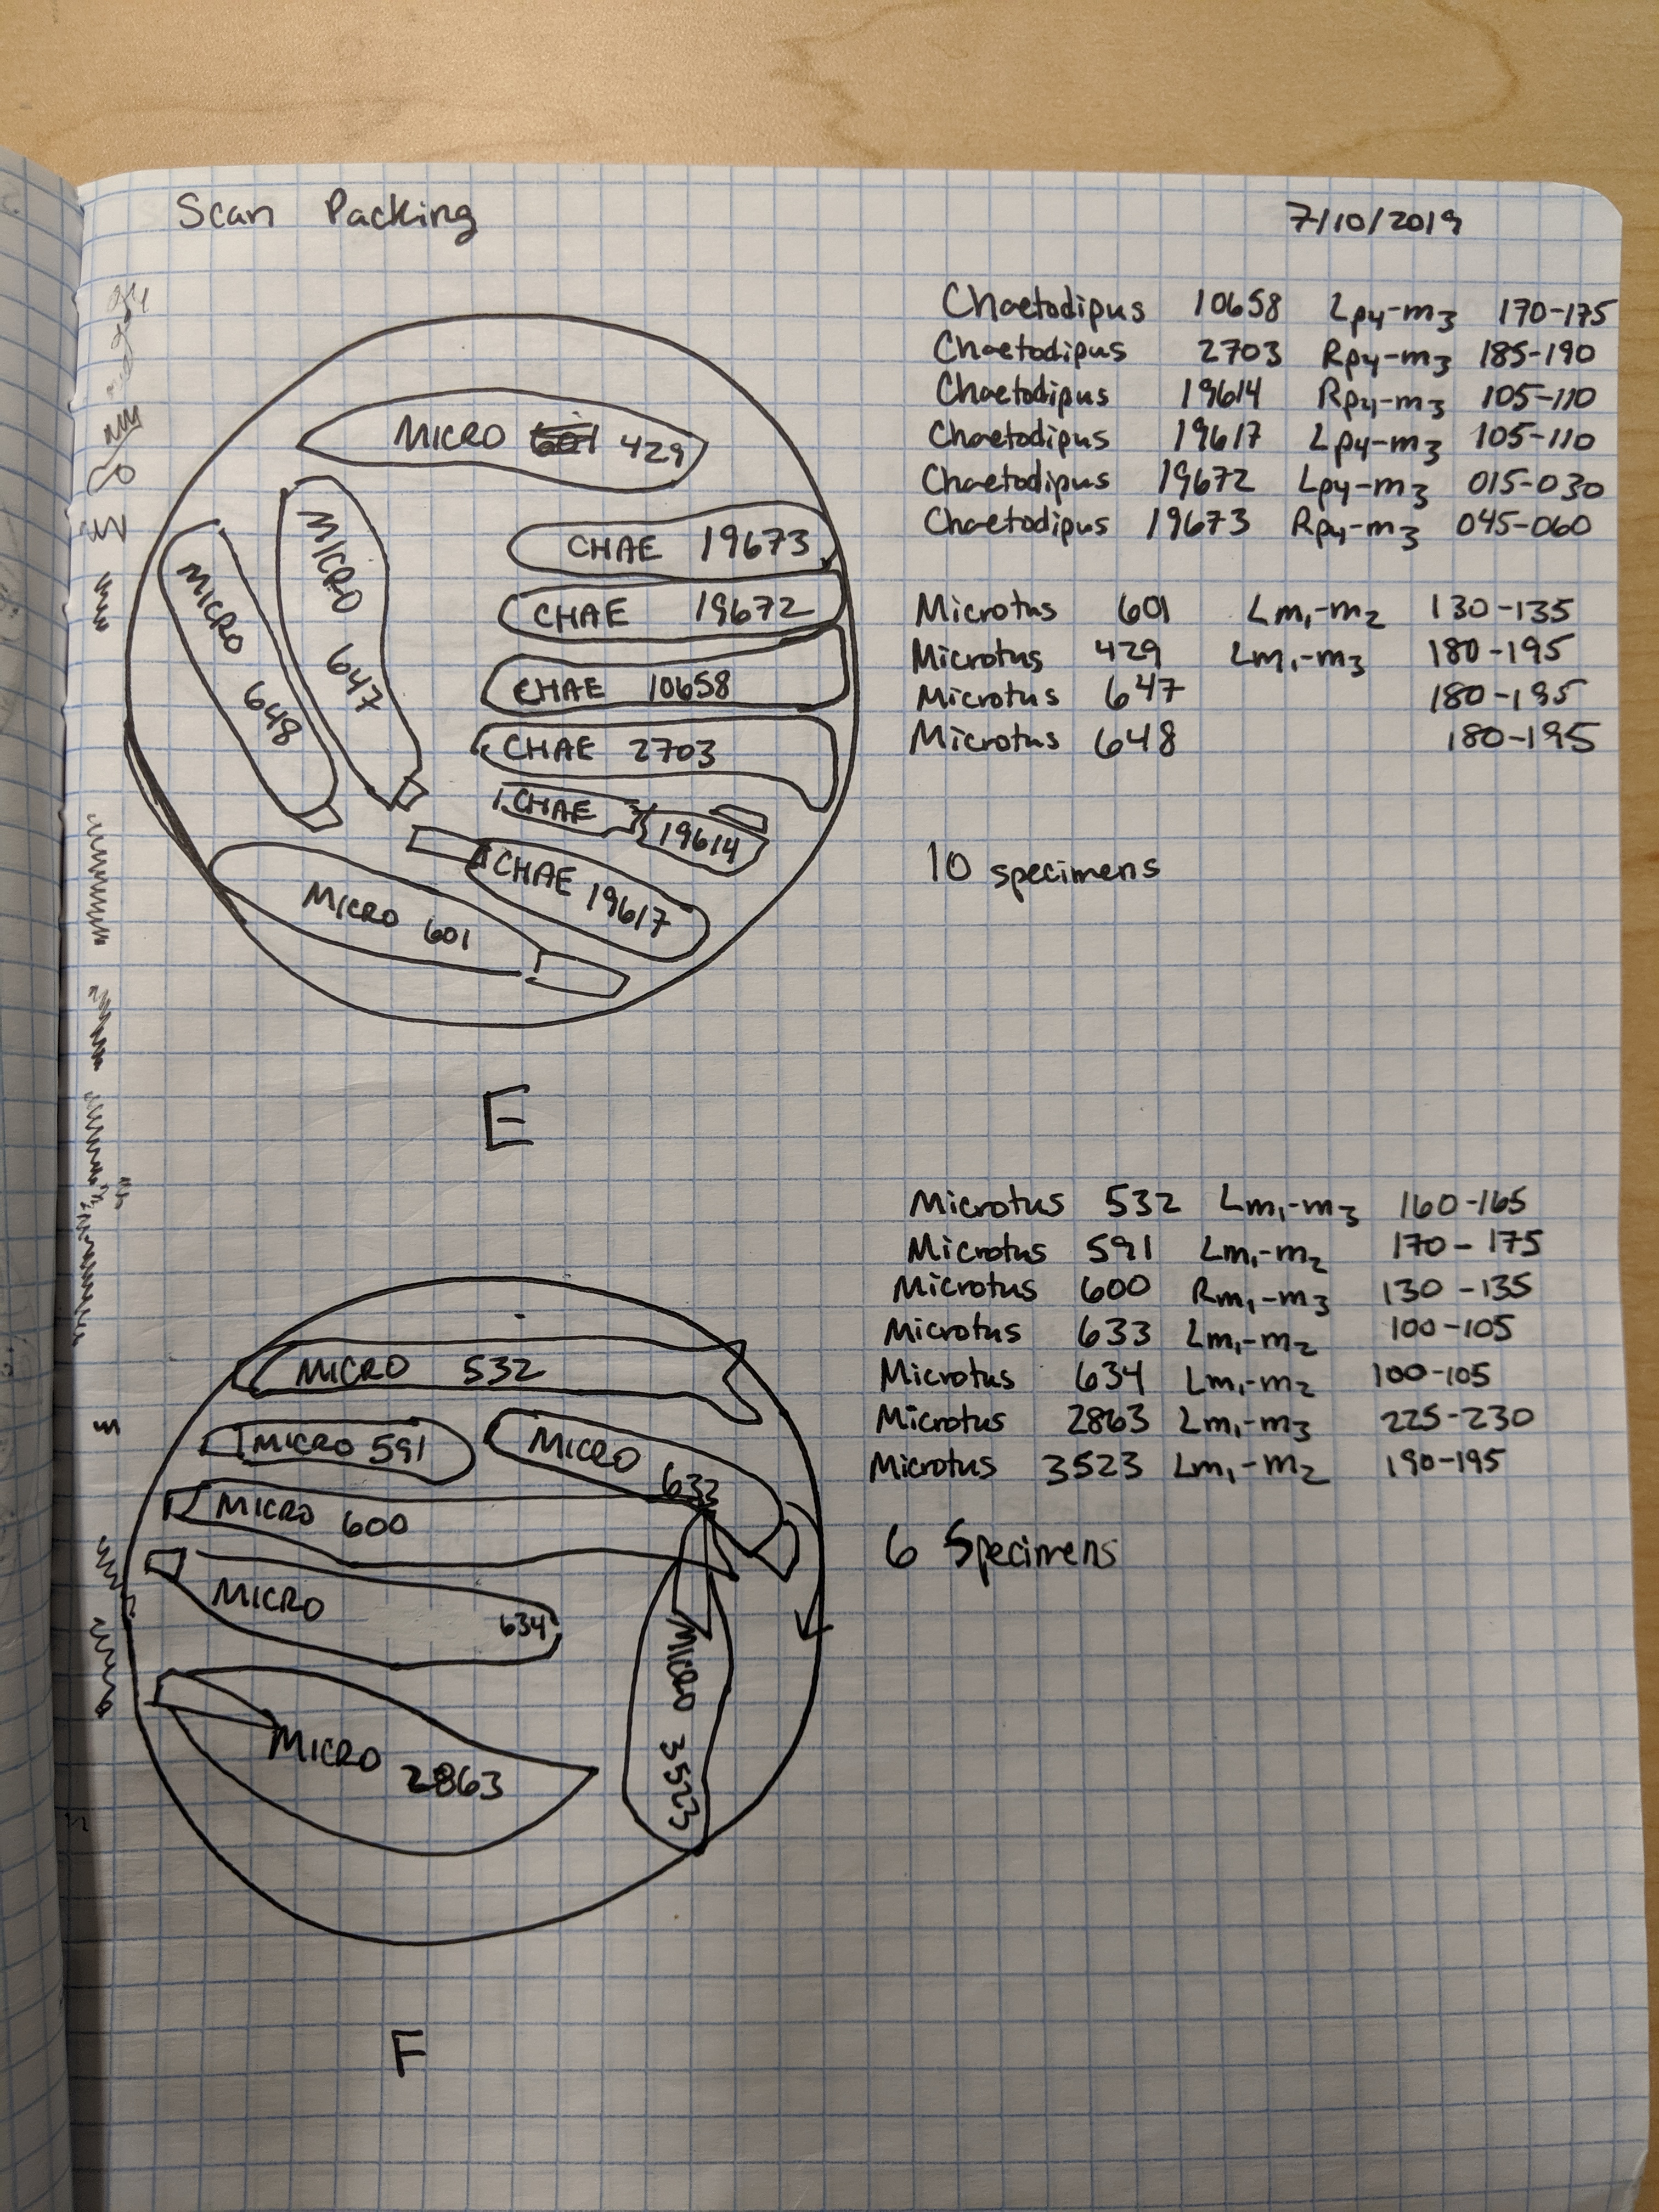 Scan Packing 7/10/2019
Chaetodipus 10658 Lp4-m3 170-175
Chaetodipus 2703 Rp4-m3 185-190
Chaetodipus 19614 Rp4-m3 105-110
Chaetodipus 19617 Lp4-m3 105-110
Chaetodipus 19672 Lp4-m3 015-030
Chaetodipus 19673 Rp4-m3 045-060
Microtus 601 Lm1-m2 130-135
Microtus 429 Lm1-m3 180-195
Microtus 647 180-195
Microtus 648 180-195
10 specimens
MICRO 601 429
MICRO 648
MICRO 647
CHAE 19673
CHAE 19672
CHAE 10658
CHAE 2703
CHAE 19614
CHAE 19617
MICRO 601
E
Microtus 532 Lm1-m3 160-165
Microtus 591 Lm1-m2 170-175
Microtus 600 Rm1-m3 130-135
Microtus 633 Lm1-m2 100-105
Microtus 634 Lm1-m2 100-105
Microtus 2863 Lm1-m3 225-230
Microtus 3523 Lm1-m2 190-195
6 Specimens
MICRO 532
MICRO 591
MICRO 633
MICRO 600
MICRO 634
MICRO 3523
MICRO 2863
F